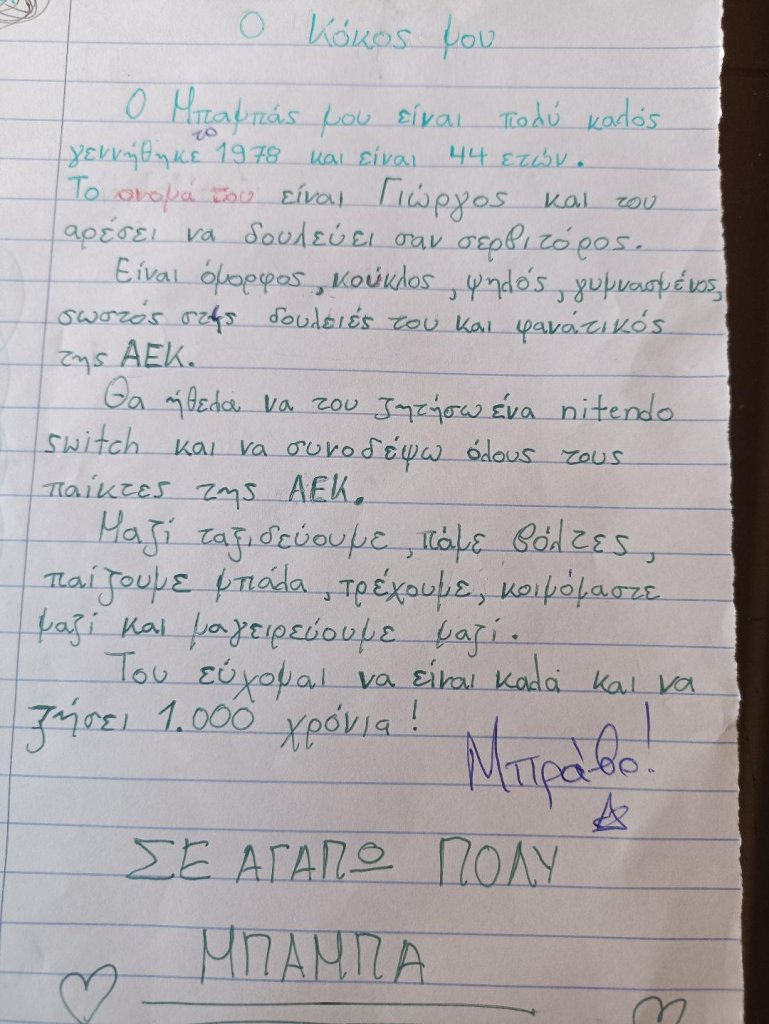 Ο Κόκος μου
Ο Μπαμπάς μου είναι πολύ καλός
το
γεννήθηκε 1978 και είναι 44 ετών.
Το ονομά του είναι Γιώργος και του
αρέσει να δουλεύει σαν σερβιτόρος.
Είναι όμορφος, κούκλος, ψηλός, γυμνασμένος,
σωστός στις δουλειές του και φανάτικός
της ΑΕΚ.
Θα ήθελα να του ζητήσω ένα nitendo
switch και να συνοδέψω όλους τους
παίκτες της ΑΕΚ.
Μαζί ταξιδεύουμε, πάμε βόλτες,
παίζουμε μπάλα, τρέχουμε, κοιμόμαστε
μαζί και μαγειρεύουμε μαζί.
Του εύχομαι να είναι καλά και να
ζήσει 1.000 χρόνια!
Μπράβο!
ΣΕ ΑΓΑΠΩ ΠΟΛΥ
ΜΠΑΜΠΑ